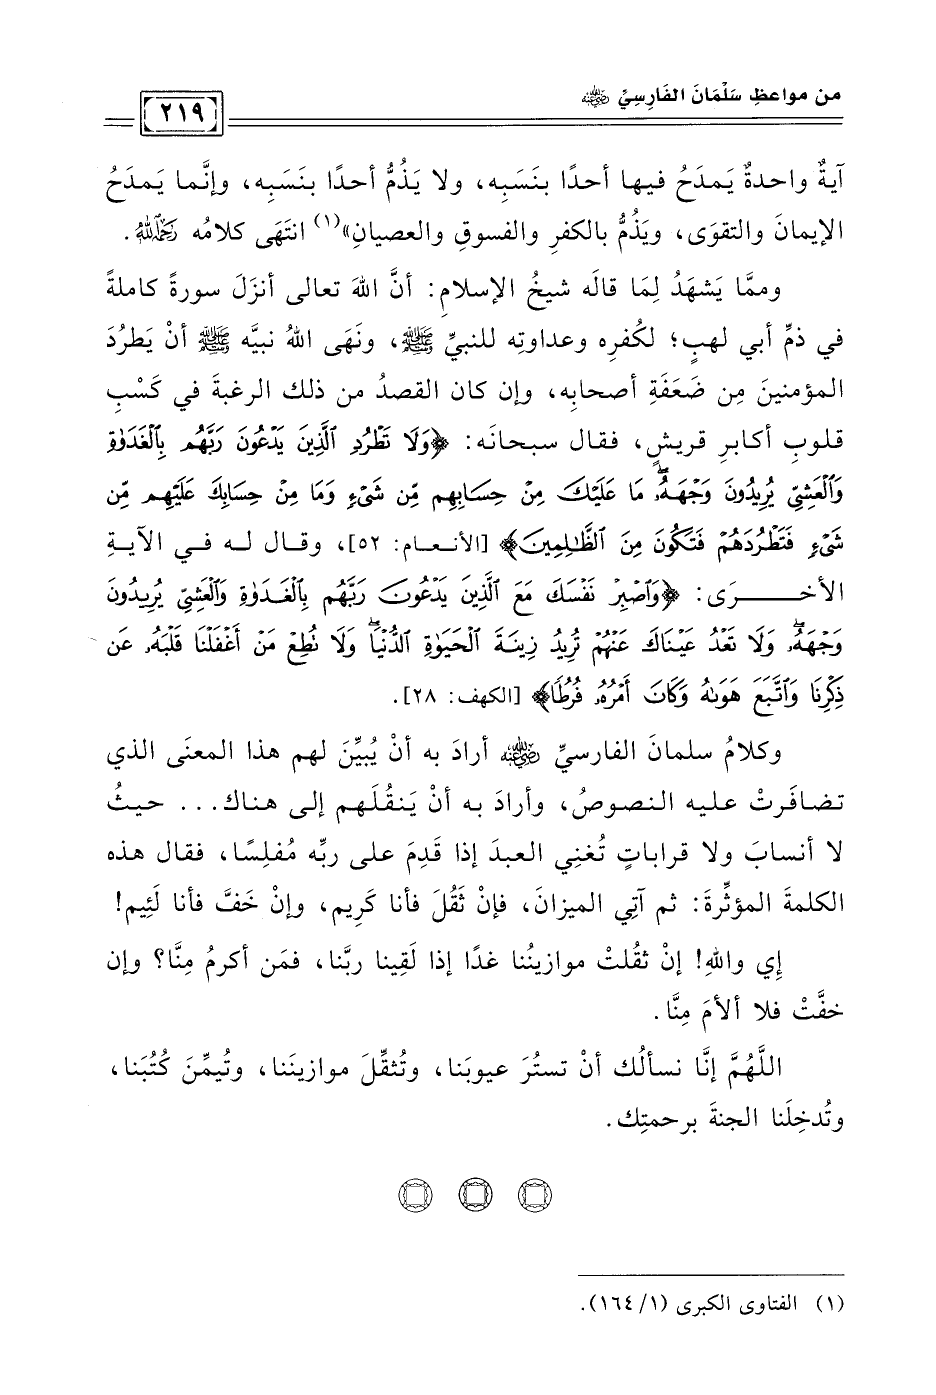 من مواعظِ سَلْمَانَ الفَارِسِيِّ رضي الله عنه
٢١٩
آيةٌ واحدةٌ يَمدَحُ فيها أحدًا بنَسَبِه، ولا يَذُمُّ أحدًا بنَسَبِه، وإنَّما يَمدَحُ
الإيمانَ والتقوَى، ويَذُمُّ بالكفرِ والفسوقِ والعصيانِ»(١) انتَهَى كلامُه رحمه الله.
وممَّا يَشهَدُ لِمَا قالَه شيخُ الإسلامِ: أنَّ اللهَ تعالى أنزَلَ سورةً كاملةً
في ذمِّ أبي لهبٍ؛ لكُفرِه وعداوتِه للنبيِّ ﷺ، ونَهَى اللهُ نبيَّه ﷺ أنْ يَطرُدَ
المؤمنينَ مِن ضَعَفَةِ أصحابِه، وإن كان القصدُ من ذلك الرغبةَ في كَسْبِ
قلوبِ أكابرِ قريشٍ، فقال سبحانَه: ﴿وَلَا تَطْرُدِ ٱلَّذِينَ يَدْعُونَ رَبَّهُم بِٱلْغَدَوٰةِ
وَٱلْعَشِيِّ يُرِيدُونَ وَجْهَهُۥۖ مَا عَلَيْكَ مِنْ حِسَابِهِم مِّن شَىْءٍ وَمَا مِنْ حِسَابِكَ عَلَيْهِم مِّن
شَىْءٍ فَتَطْرُدَهُمْ فَتَكُونَ مِنَ ٱلظَّٰلِمِينَ﴾ [الأنعام: ٥٢]، وقال له في الآيةِ
الأخرَى: ﴿وَٱصْبِرْ نَفْسَكَ مَعَ ٱلَّذِينَ يَدْعُونَ رَبَّهُم بِٱلْغَدَوٰةِ وَٱلْعَشِيِّ يُرِيدُونَ
وَجْهَهُۥۖ وَلَا تَعْدُ عَيْنَاكَ عَنْهُمْ تُرِيدُ زِينَةَ ٱلْحَيَوٰةِ ٱلدُّنْيَاۖ وَلَا تُطِعْ مَنْ أَغْفَلْنَا قَلْبَهُۥ عَن
ذِكْرِنَا وَٱتَّبَعَ هَوَىٰهُ وَكَانَ أَمْرُهُۥ فُرُطًا﴾ [الكهف: ٢٨].
وكلامُ سلمانَ الفارسيِّ رضي الله عنه أرادَ به أنْ يُبيِّنَ لهم هذا المعنَى الذي
تضافَرتْ عليه النصوصُ، وأرادَ به أنْ يَنقُلَهم إلى هناك... حيثُ
لا أنسابَ ولا قراباتٍ تُغنِي العبدَ إذا قَدِمَ على ربِّه مُفلِسًا، فقال هذه
الكلمةَ المؤثِّرةَ: ثم آتِي الميزانَ، فإنْ ثَقُلَ فأنا كَرِيم، وإنْ خَفَّ فأنا لَئِيم!
إي واللهِ! إنْ ثقُلتْ موازينُنا غدًا إذا لَقِينا ربَّنا، فمَن أكرمُ مِنَّا؟ وإن
خفَّتْ فلا ألأمَ مِنَّا.
اللَّهُمَّ إنَّا نسألُك أنْ تستُرَ عيوبَنا، وتُثقِّلَ موازينَنا، وتُيمِّنَ كُتُبَنا،
وتُدخِلَنا الجنةَ برحمتِك.
(١) الفتاوى الكبرى (١/١٦٤).